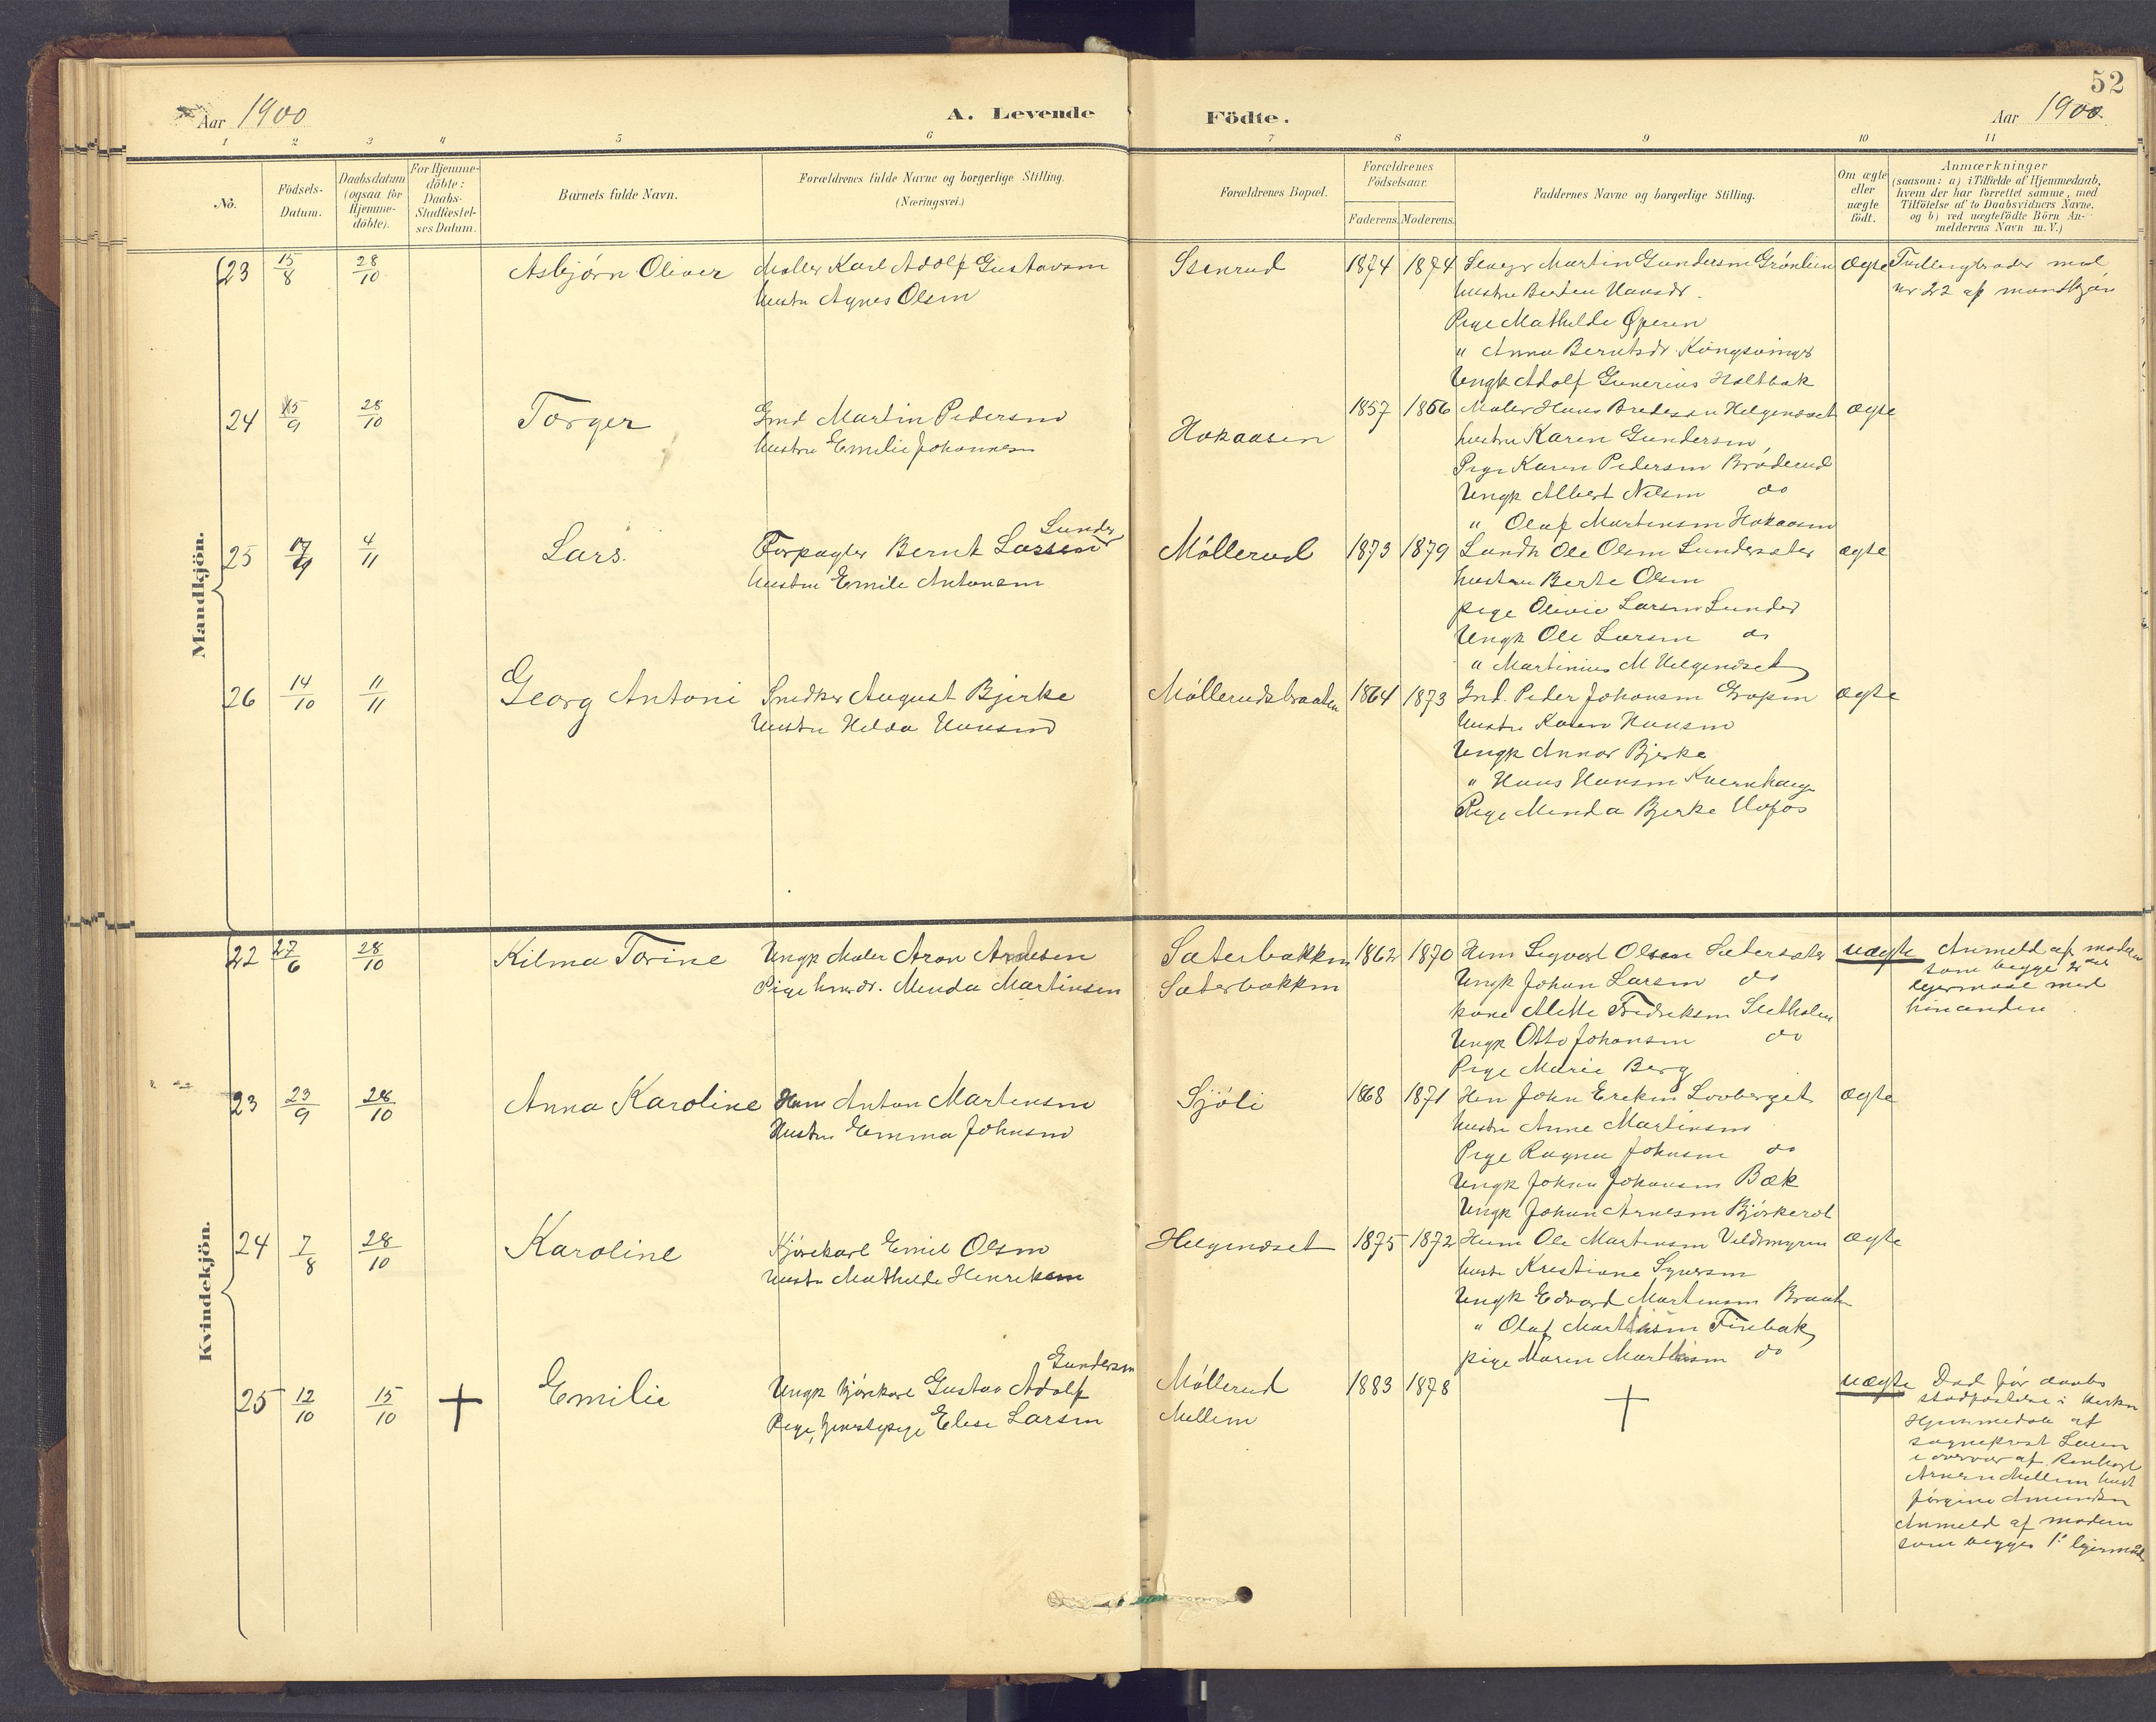 52
Aar 1900
A. Levende Födte.
Aar 1900.
1 2 3 4 5 6 7 8 9 10 11
No.
Födsels-Datum.
Daabsdatum (ogsaa for Hjemme-döbte).
For Hjemme-döbte: Daabs-Stadfæstel-ses Datum.
Barnets fulde Navn.
Forældrenes fulde Navne og borgerlige Stilling. (Næringsvei.)
Forældrenes Bopæl.
Forældrenes Födselsaar.
Faderens. Moderens.
Faddernes Navne og borgerlige Stilling.
Om ægte eller uægte födt.
Anmærkninger
(saasom: a) i Tilfælde af Hjemmedaab,
hvem der har forrettet samme, med
Tilföielse af to Daabsvidners Navne,
og b) ved uægtefödte Börn An-
melderens Navn m.V.)
Mandkjön.
23 15/8 28/10 Asbjörn Oliver Maler Karl Adolf Gustavsen Stenrud 1874 1874 Martin Gundersen Grönlien Ægte Tvillingbroder med
hustru Agnes Olsen
hustru Berthe Hansdr. nr 22 af mandkjön
Pige Mathilde
" Anna Berntsdr Kongsvinger
Ungk Adolf Gunerius Holtbak
24 15/9 28/10 Torger Gmd Martin Pedersen Hokaasen 1857 1866 Maler Hans Bredesen Helgendset ægte
hustru Emilie Johannesen
hustru Karen Gundersen,
Pige Karen Pedersen Bröderud
Ungk Albert Nilsen do
" Olaf Martinsen Hokaasen
25 4/11 Lars. Forpagter Bernt Larsen Lunder Möllerud 1873 1879 Landh Ole Olsen Lundersæter ægte
hustru Emilie Antonsen
hustru Berte Olsen
pige Olivie Larsen Lunder
Ungk Ole Larsen do
" Martinius M Helgendset
26 14/10 11/11 Georg Antoni Snedker August Bjerke Möllerudsbraaten 1864 1873 Ind. Peder Johansen ægte
hustru Helda Hansen
hustru Karen Hansen
Ungk Annar Bjerke
" Hans Hansen Kvernhaug
Pige Menda Bjerke Hofos
Kvindekjön.
22 27/6 28/10 Kilma Torine Ungk Maler Aron Arnesen Sæterbakken 1862 1870 Hem Sigvart Olsen Sætersæter uægte Anmeld af moderen
Pige hmdr. Menda Martinsen Sæterbakken
Ungk Johan Larsen do som begge 2det
kone Alette Fredriksen Sletholen leiermaal med
Ungk Otto Johansen do hinanden
Pige Marie Berg
23 23/9 28/10 Anna Karoline Hem Anton Martinsen Sjöli 1868 1871 Hem John Eriksen Lovberget ægte
Hustru Emma Johnsen
hustru Anne Martinsen
Pige Ragna Johnsen do
Ungk Johan Johansen Bæk
Ungk Johan Arnesen Björkerol
24 7/8 28/10 Karoline Kjörekarl Emil Olsen Helgendset 1875 1872 Hem Ole Martinsen Veldtmyren ægte
hustru Mathilde Henriksen
hustru Kristiane Syversen
Ungk Edvard Martinsen Braaten
" Olaf Mathisen Finbak
pige Maren Mathisen do
25 12/10 15/10 + Emilie Ungk Kjörekarl Gustav Adolf Gundersen Möllerud 1883 1878 + uægte Död för daabs
Pige, tjenestepige Elise Larsen Mellem
stadfæstelse i kirken
Hjemmedöbt af
sogneprest
i overvær af
Arnesen Mellem hust
Jörgine Amundsen
Anmeld af moderen
som begges 1. leiermaal